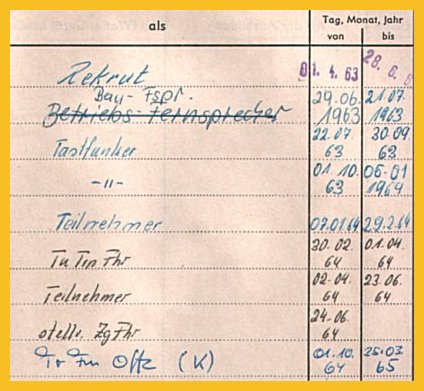 als Tag, Monat, Jahr
von bis
Rekrut 01. 4. 63 28. 6.
Bau-Fspr. 29.06. 21.07.
Betriebs-Fernsprecher 1963 1963
Tastfunker 22.07. 30.09
63 63
-"- 01.10. 06.01
63 1964
Teilnehmer 07.01.64 29.2.64
30.02. 01.04.
Tu Trp Fhr 64 64
02.04. 23.06.
Teilnehmer 64 64
24.06.
stellv. Zg Fhr 64
Offz (K) 01.10. 25.03.
64 65